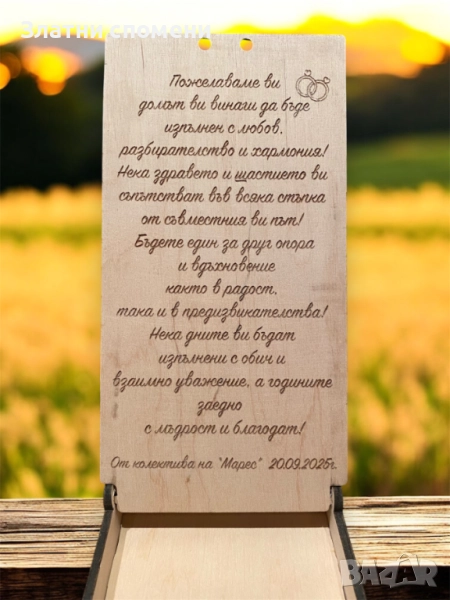 Златни спомени
Пожелаваме ви
домът ви винаги да бъде
изпълнен с любов,
разбирателство и хармония!
Нека здравето и щастието ви
съпътстват във всяка стъпка
от съвместния ви път!
Бъдете един за друг опора
и вдъхновение
както в радост,
така и в предизвикателства!
Нека дните ви бъдат
изпълнени с обич и
взаимно уважение, а годините
заедно
с мъдрост и благодат!
От колектива на "Марес" 20.09.2025г.
BAZAR